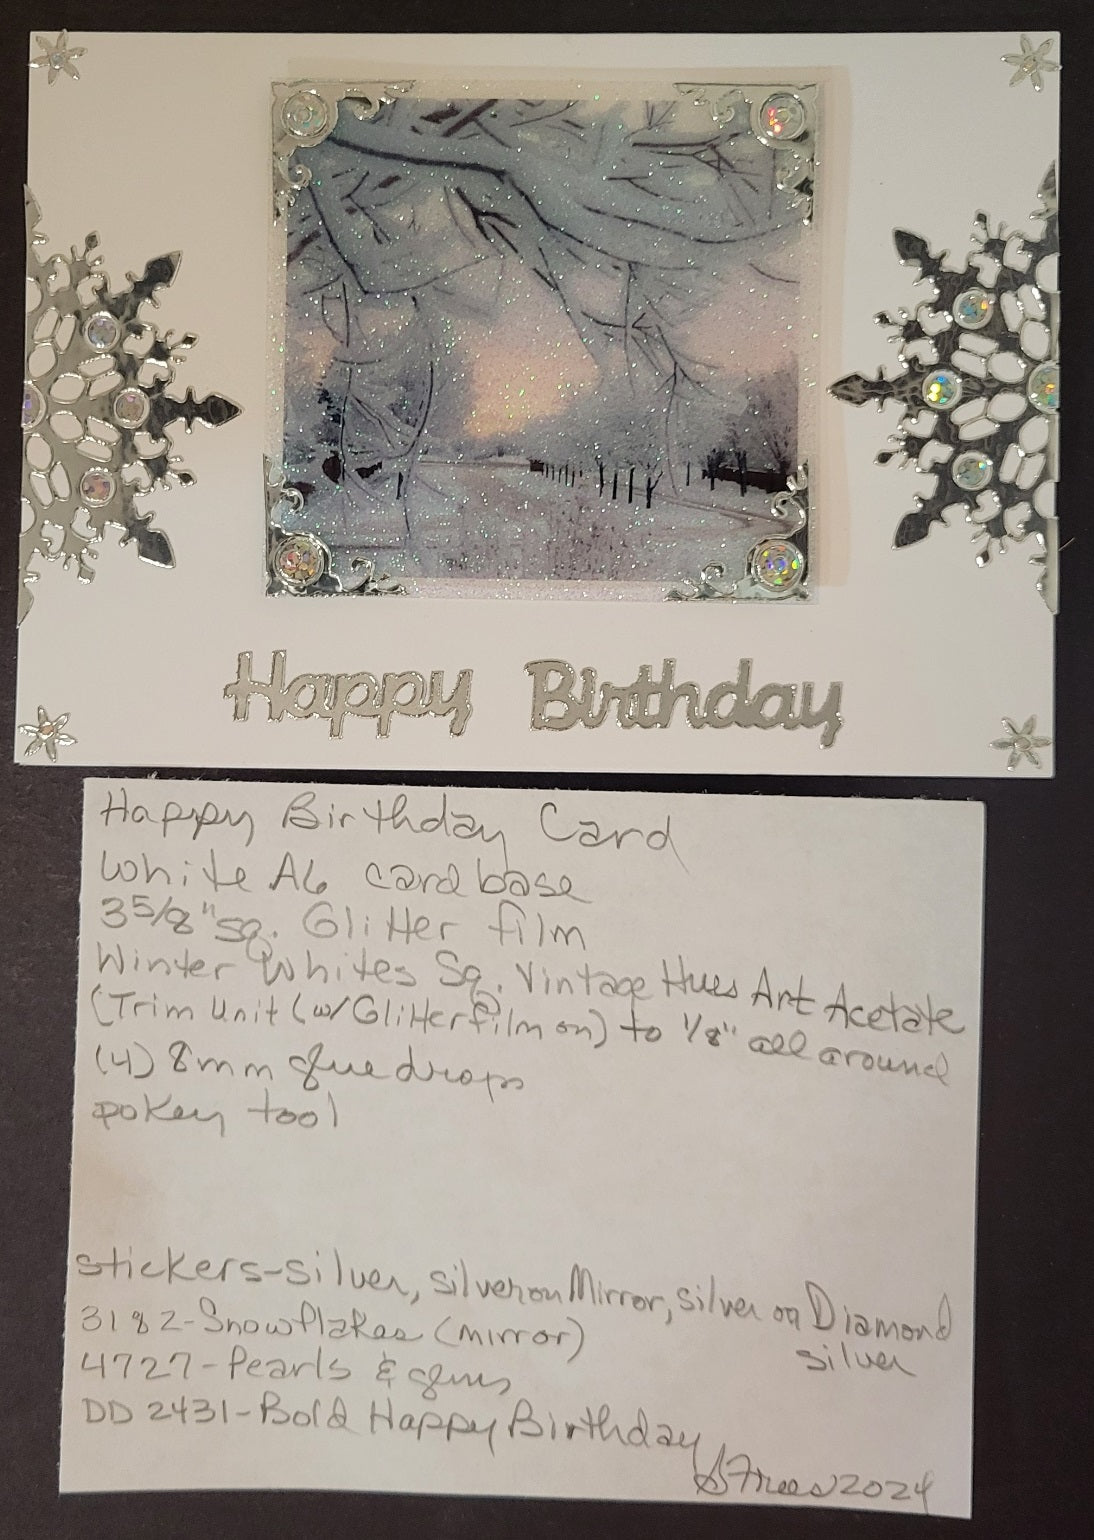 Happy Birthday
Happy Birthday Card
White A6 card base
3 5/8" sq. Glitter film
Winter Whites Sq. Vintage Hues Art Acetate
(Trim Unit (w/Glitter film on) to 1/8" all around
(4) 8mm glue drops
pokey tool
stickers-silver, silver on Mirror, silver on Diamond
silver
3182-Snowflakes (mirror)
4727-Pearls & gems
DD 2431-Bold Happy Birthday
SFrees 2024